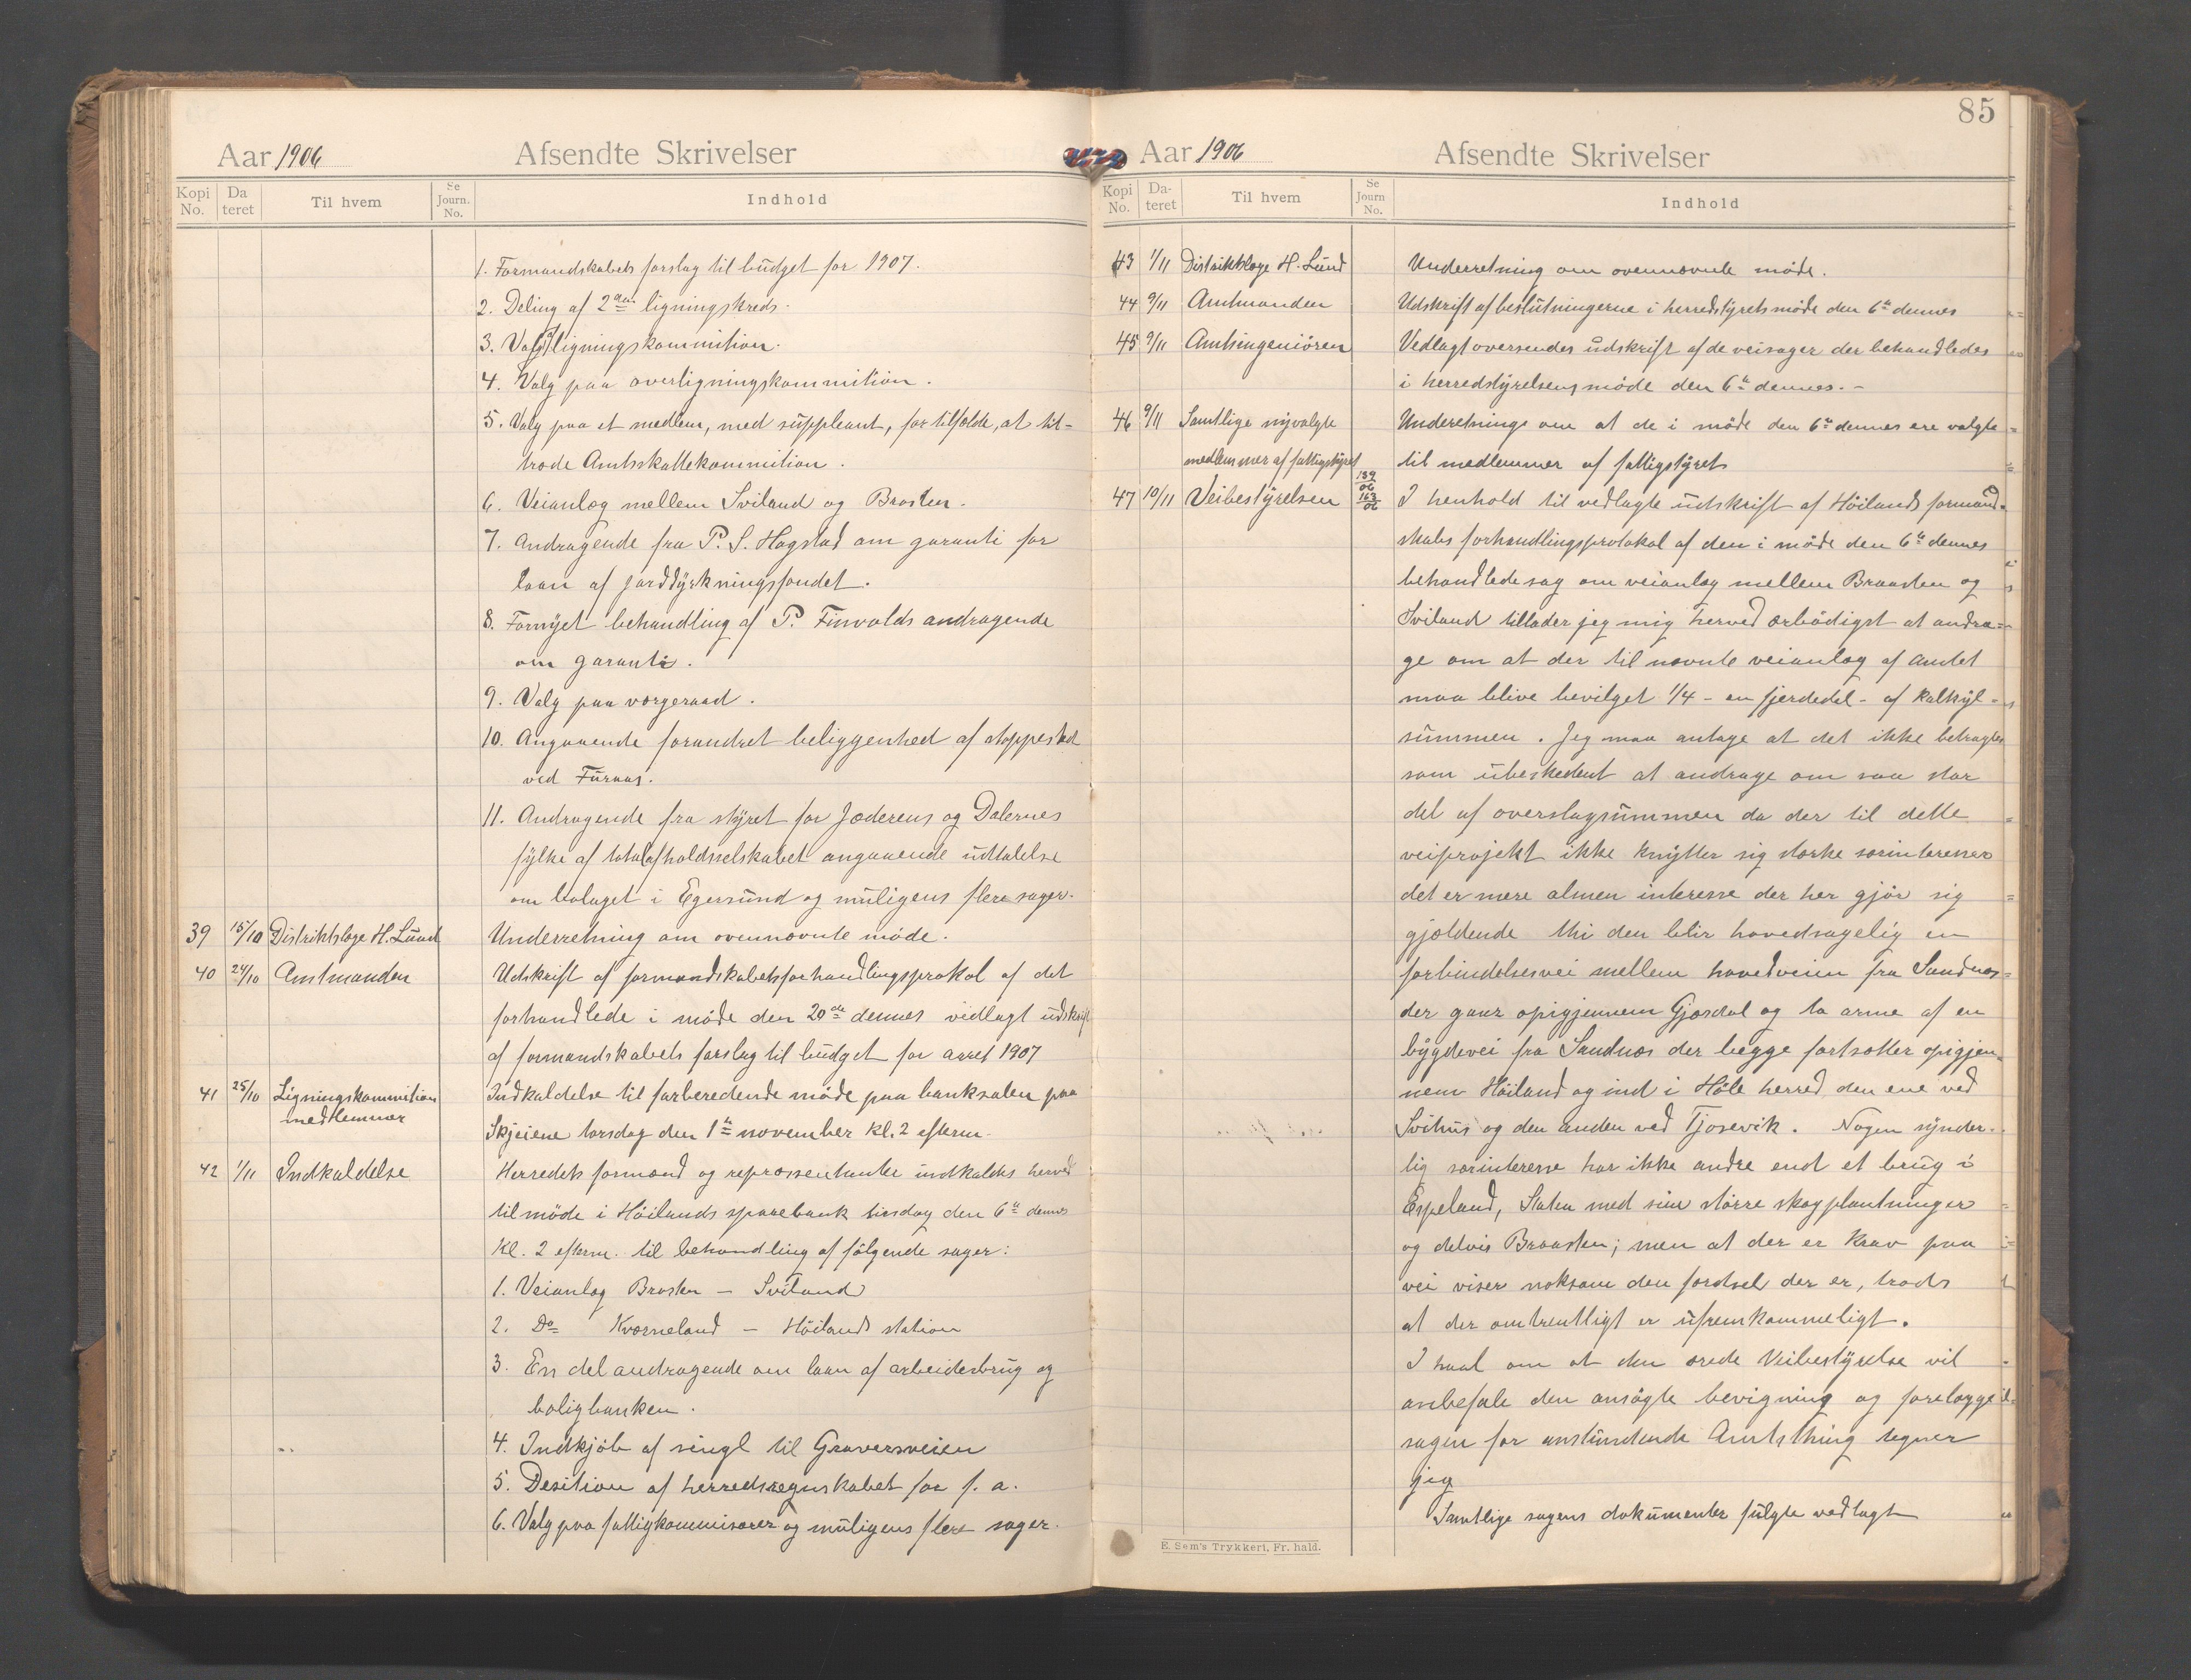 Aar 1906 Afsendte Skrivelser
Kopi No. Da teret Til hvem Se Journ. No. Indhold
1. Formandskabets forslag til budget for 1907.
2. Deling af 2den ligningskreds.
3. Valg af ligningskommition.
4. Valg paa overligningskommition.
5. Valg paa et medlem, med suppleant, for tilfælde, at til-
træde Amtsskattekommition.
6. Veianlæg mellem Sviland og Brasten.
7. Andragende fra P. S. Hogstad om garanti for
laan af jorddyrkningsfondet.
8. Fornyet behandling af P. Finvolds andragende
om garanti.
9. Valg paa vorgeraad.
10. Angaaende forandret beliggenhed af stoppested
ved Furaas.
11. Andragende fra styret for Jæderens og Dalernes
fylke af totalafholdsselskabet angaaende udtalelse
om bolaget i Egersund og muligens flere sager.
39 15/10 Distriktslæge H. Lund Underretning om ovennævnte møde.
40 24/10 Amtmanden Udskrift af formandskabetsforhandlingsprokol af det
forhandlede i møde den 20de dennes vedlagt udskrift
af formandskabets forslag til budget for arret 1907
41 25/10 Ligningskommition Indkaldelse til forberedende møde paa banksalen paa
medlemmer
Skjeiene torsdag den 1te november kl. 2 efterm.
42 1/11 Indkaldelse Herredets formænd og repræssentanter indkaldes herved
til møde i Höilands sparebank tirsdag den 6te dennes
Kl. 2 efterm. til behandling af følgende sager:
1. Veianlæg Brasten – Sviland
2. Do Kværneland – Höilands station
3. En del andragende om laan af arbeiderbrug og
boligbanken.
4. Indkjöb af singl til Graversveien
5. Desition af herredsregnskabet for f. a.
6. Valg paa fattigkommisærer og muligens flere sager.
85
Aar 1906 Afsendte Skrivelser
Kopi No. Da-teret Til hvem Se Journ No. Indhold
43 1/11 Distriktslæge H. Lund Underretning om ovennævnte møde.
44 9/11 Amtmanden Udskrift af beslutningerne i herredstyrets møde den 6te dennes
45 9/11 Amtsingeniören Vedlagt oversendes udskrift af de veisager der behandledes
i herredstyrelsens møde den 6te dennes. –
46 9/11 Samtlige nyvalgte Underetnings om at de i møde den 6te dennes ere valgte
medlemmer af fattigstyret til medlemmer af fattigstyret
47 10/11 Veibestyrelsen 139/06 163/06 I henhold til vedlagte udskrift af Höilands formand-
skabs forhandlingsprotokol af den i møde den 6te dennes
behandlede sag om veianlæg mellem Braasten og
Sviland tillader jeg mig herved ærbödigst at andra-
ge om at der til nævnte veianlæg af amtet
maa blive bevilget 1/4 – en fjerdedel – af kalkyl-
summen. Jeg maa antage at det ikke betragtes
som ubeskedent at andrage om saa stor
del af overslagsummen da der til dette
veiprojekt ikke knytter sig stærke særinteresser
det er mere almen interesse der her gjör sig
gjældende thi den blir hovedsagelig en
forbindelsesvei mellem hovedveien fra Sandnæs
der gaar opigjennem Gjæsdal og to arme af en
bygdevei fra Sandnæs der begge fortsætter opigjen-
nem Höiland og ind i Höle herred den ene ved
Svihus og den anden ved Tjosevik. Nogen synder-
lig særinteresse har ikke andre end et brug i
Espeland, Staten med sine större skogplantninger
og delvis Braasten; men at der er krav paa
vei viser noksom den færdsel der er, trods
at der omtrentligt er ufremkommeligt.
I haab om at den ærede Veibestyrelse vil
anbefale den ansögte bevigning og forelægge
sagen for anstundende Amtsthing tegner
jeg
Samtlige sagens dokumenter fulgte vedlagt
E. Sem's Trykkeri, Fr. hald.